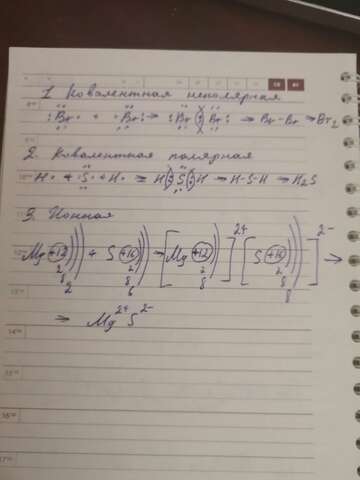 1. Ковалентная неполярная
:Br· + ·Br: → :Br(:)Br: → Br-Br → Br2
2. Ковалентная полярная
H· + ·S· + ·H → H(:)S(:)H → H-S-H → H2S
3. Ионная
Mg +12 ))) + S +16 ))) → [Mg +12 )) ]2+ [S +16 ))) ]2- →
2 8 2 2 8 6 2 8 2 8 8
→ Mg2+ S2-